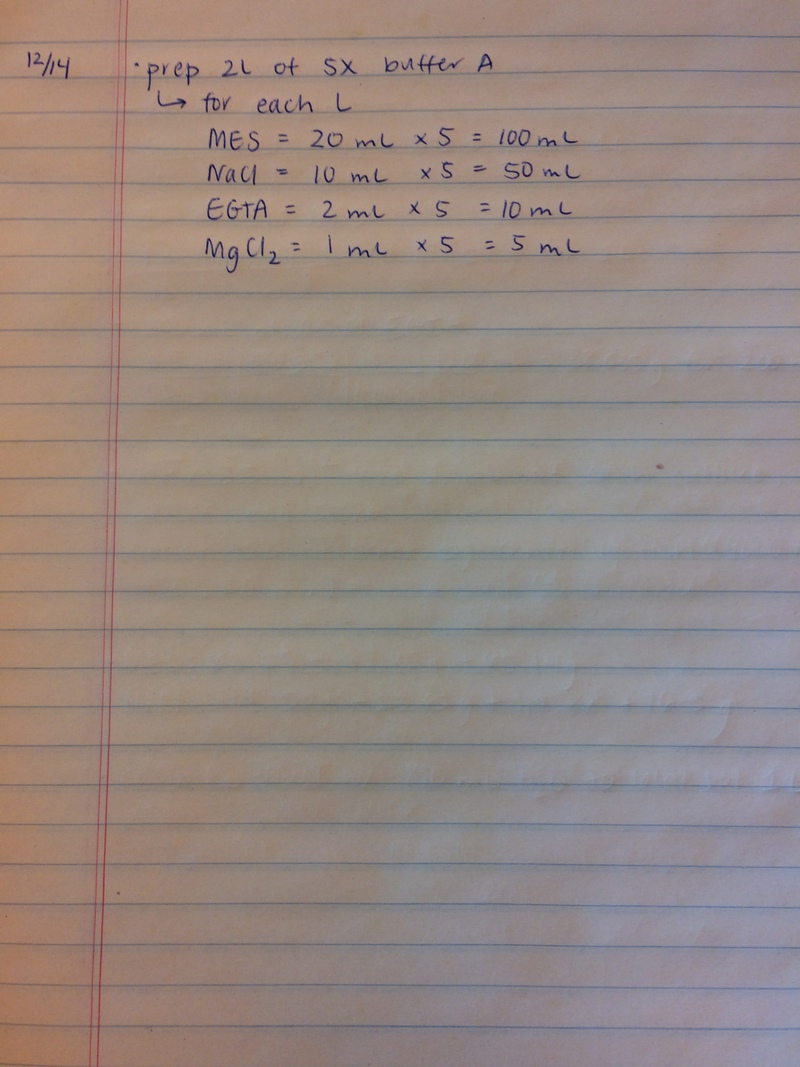 12/14 · prep 2L of 5X buffer A
↳ for each L
MES = 20 mL × 5 = 100 mL
NaCl = 10 mL × 5 = 50 mL
EGTA = 2 mL × 5 = 10 mL
MgCl₂ = 1 mL × 5 = 5 mL